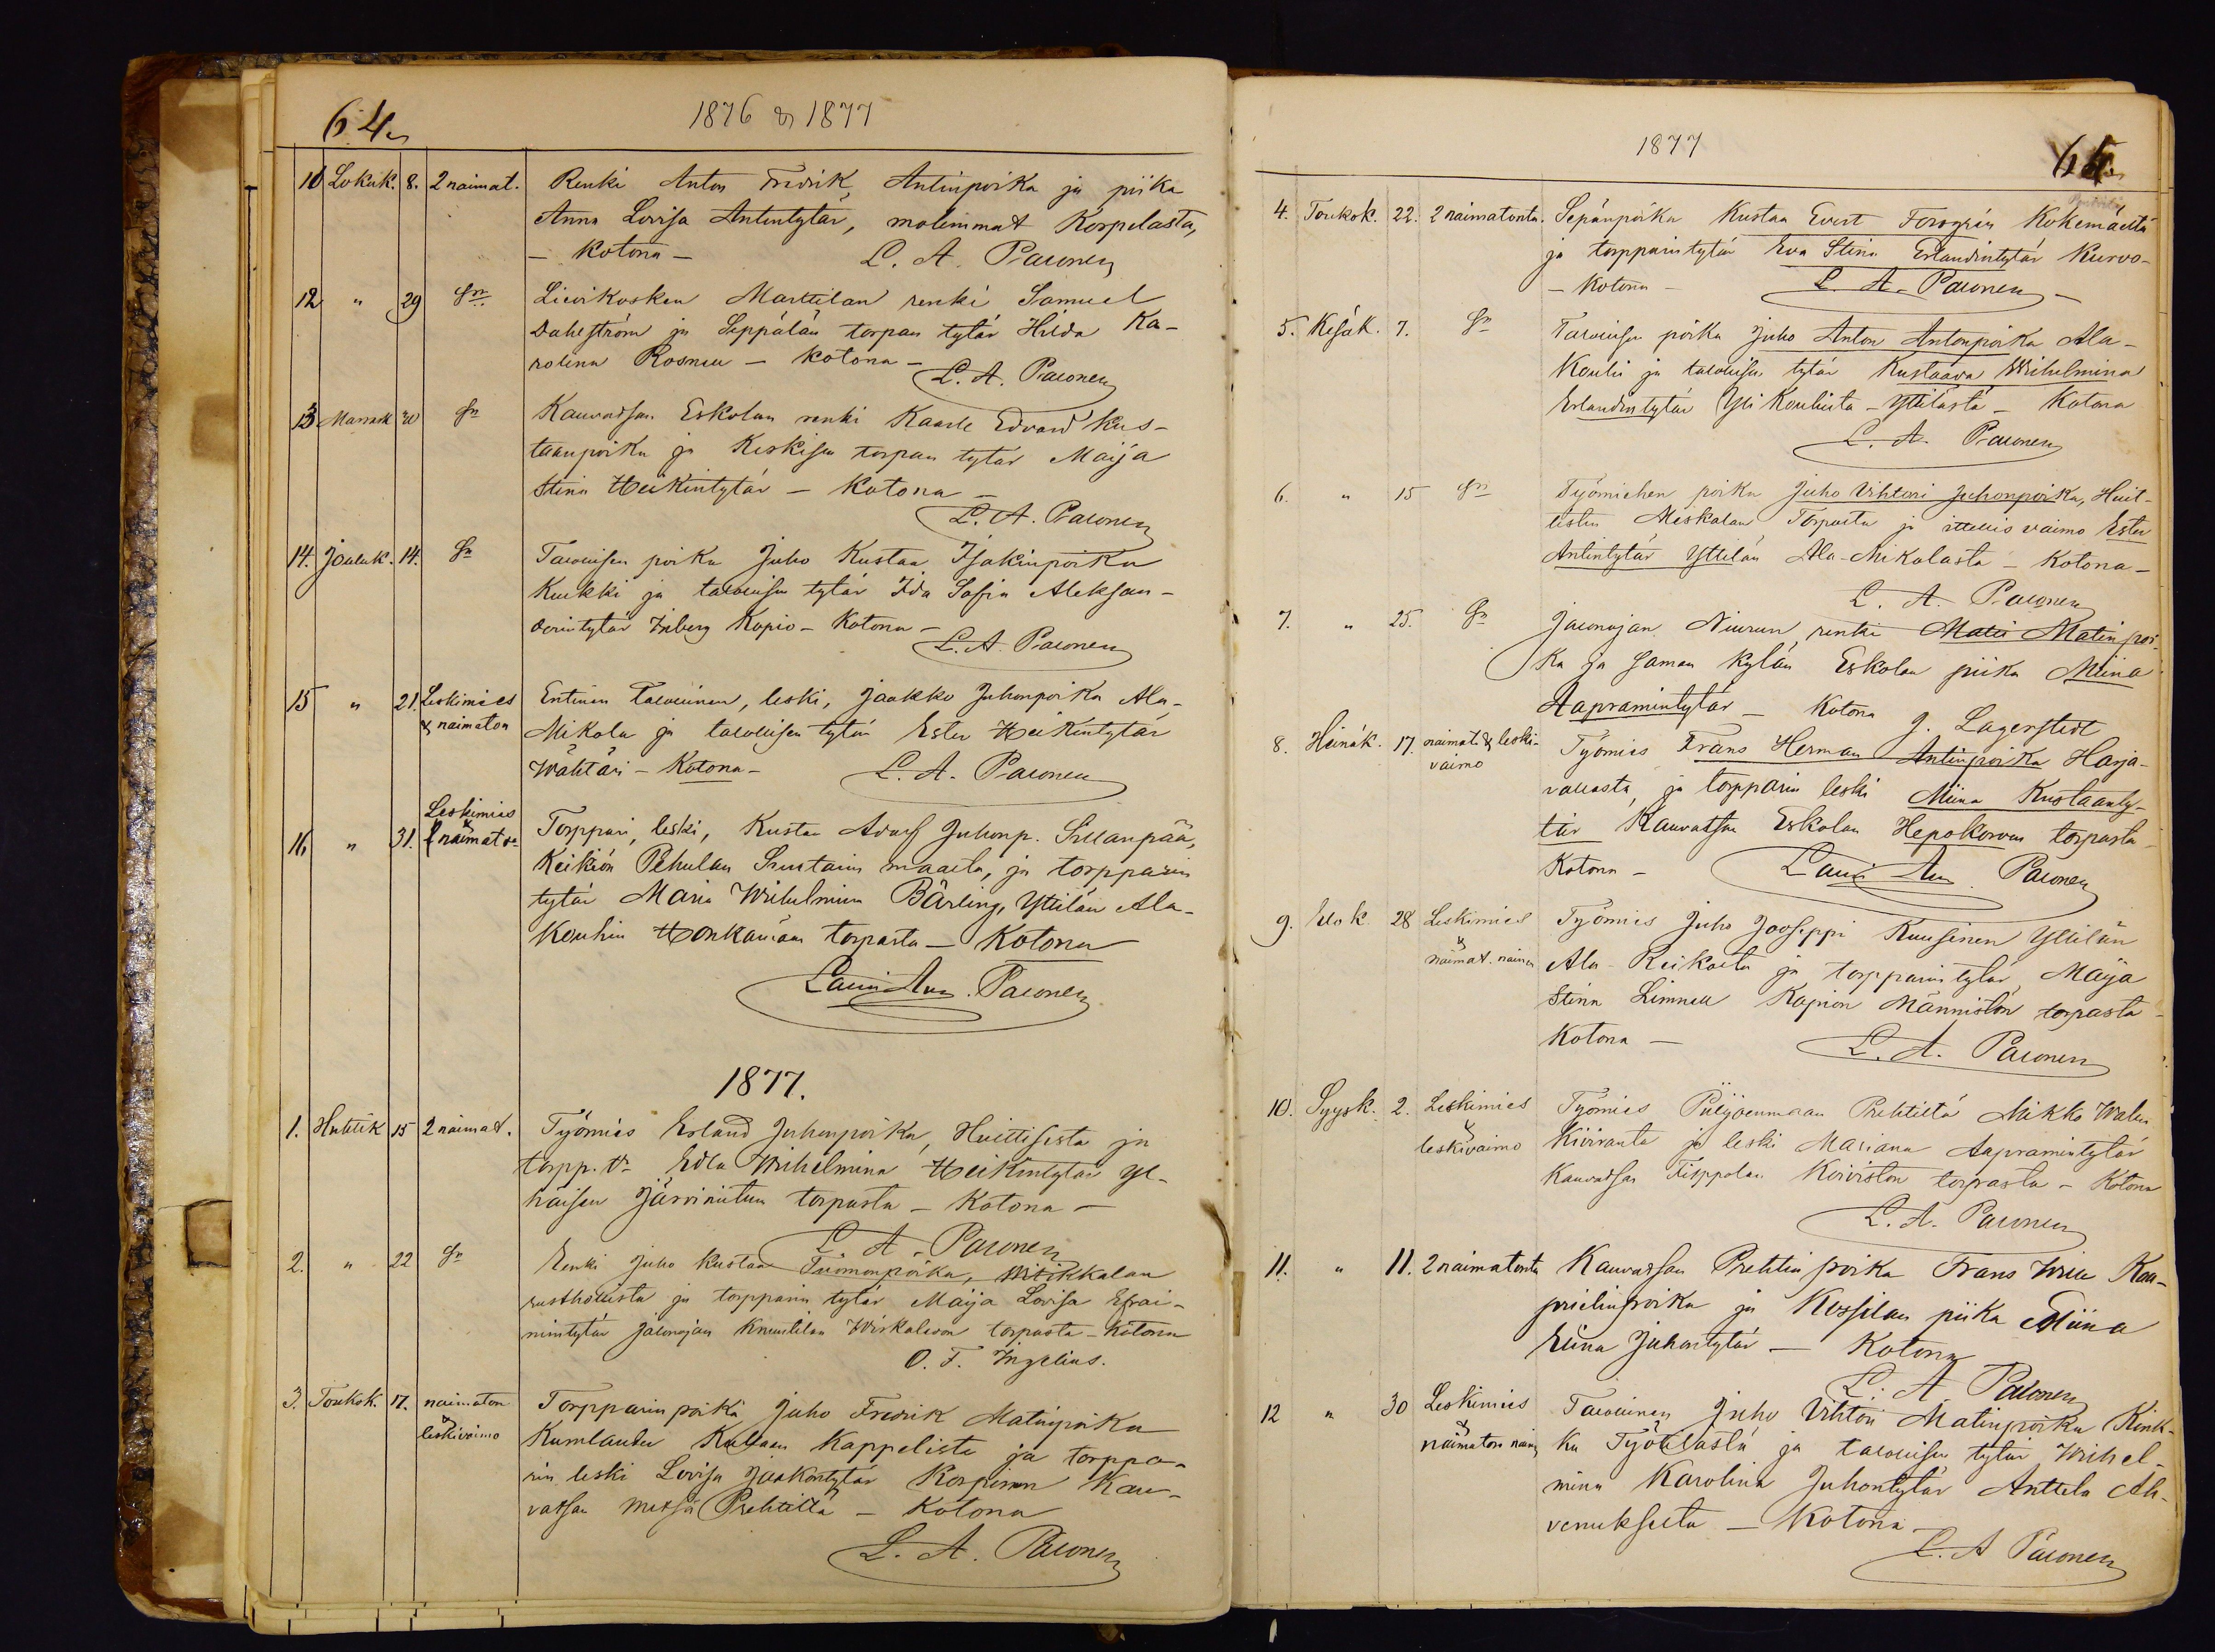 64.
1876 & 1877
10 Lokak. 8. 2 naimat. Renki Anton Fredrik Antinpoika ja piika
Anna Lovisa Antintytär, molemmat Korpelasta,
- Kotona - L. A. Paeonen
12 " 29 Sn. Lievikosken Marttilan renki Samuel
Dahlström ja Seppälän torpan tytär Hilda Ka-
rolina Rosnell - Kotona -
L. A. Paeonen
13 Marrask 20 Sn Kauvatsan Eskolan renki Kaarle Edvard Kus-
taanpoika ja Keskisen torpan tytär Maija
Stina Heikintytär - Kotona -
L. A. Paeonen
14. Jouluk. 14. Sn Talollisen poika Juho Kustaa Isakinpoika
Kukki ja talollisen tytär Ida Sofia Aleksan-
derintytär Inberg Kopio - Kotona -
L. A. Paeonen
15 " 21. Leskimies Entinen Talollinen, leski, Jaakko Juhonpoika Ala-
& naimaton Mikola ja talollisen tytär Ester Heikintytär
Wähtäri - Kotona - L. A. Paeonen
Leskimies
16 " 31. & naimat. Torppari, leski, Kustaa Adolf Juhonp. Sillanpää,
Keikiön Pehulan maalta, ja torpparin
tytär Maria Wilhelmina Bärling, Yttilän Ala-
Kouhin Honkamäen torpasta - Kotona
Lauri Aug. Paeonen
1877.
1. Huhtik 15 2 naimat. Työmies Erland Juhonpoika, Huittisista ja
torpp. tr Edla Wilhelmina Heikintytär Yl-
häisen Järviniitun torpasta - Kotona -
L. A. Paeonen
2. " 22 Sn Renki Juho Kustaa Tuomonpoika, Witikkalan
rusthollista ja torpparin tytär Maija Lovisa Efrai-
mintytär Jalonojan Knuutilan torpasta - Kotona
O. F. Ingelius.
3. Toukok. 17. naimaton Torpparin poika Juho Fredrik Matinpoika
& leskivaimo Kumlander Kullaan Kappelista ja torppa-
rin leski Lovisa Jaakontytär Korpinen Kau-
vatsan metsä Prehtiltä - Kotona
L. A. Paeonen
1877
65.
4. Toukok. 22. 2 naimatonta. Sepänpoika Kustaa Evert Forsgrén Kokemäeltä
ja torpparintytär Eva Stina Erlandintytär Kurvo-
- Kotona - L. A. Paeonen -
5. Kesäk. 7. Sn Talollisen poika Juho Anton Antonpoika Ala-
Kouhi ja talollisen tytär Kustaava Wilhelmina
Erlandintytär Yli Kouhista - Yttilästä - Kotona
L. A. Paeonen
6. " 15 Sn Työmiehen poika Juho Vihtori Juhonpoika, Huit-
tisten Meskalan Torpasta ja itsellis vaimo Ester
Antintytär Yttilän Ala-Mikolasta - Kotona -
L. A. Paeonen
7. " 25. Sn Jalonojan Niurun renki Matti Matinpoi-
ka ja saman kylän Eskolan piika Miina
Aapramintytär - Kotona J. Lagerstedt
8. Heinäk. 17. naimat. & leski- Työmies Frans Herman Antinpoika Harja-
vaimo vallasta, ja torpparin leski Miina Kustaanty-
tär Kauvatsan Eskolan Hepokorvan torpasta -
Kotona - Lauri Aug. Paeonen
9. Elok. 28 Leskimies Työmies Juho Jooseppi Kuusinen Yttilän
& naimat. nainen Ala-Keikolta ja torpparintytär Maija
Stina Limnell Kopion Männistön torpasta -
Kotona - L. A. Paeonen
10. Syysk. 2. Leskimies Työmies Piilijoenmaan Prehtiltä Mikko
& leskivaimo Kiviranta ja leski Mariana Aapramintytär
Kauvatsan Piippolan Koiviston torpasta - Kotona
L. A. Paeonen
11. " 11. 2 naimatonta Kauvatsan Prehtin poika Frans Wille Kaa-
prielinpoika ja Kossilan piika Miina
Eliina Juhontytär - Kotona
L. A. Paeonen
12 " 30 Leskimies Talollinen Juho Vihtori Matinpoika Kink-
& naimaton nain. ka Työtilästä ja talollisen tytär Wilhel-
mina Karolina Juhontytär Anttila Ala-
venukselta - Kotona -
L. A Paeonen